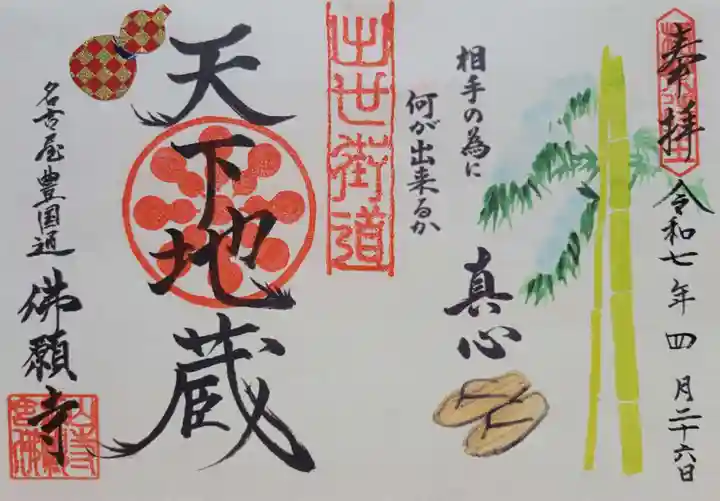 奉拝
令和七年四月二十六日
相手の為に
何が出来るか
真心
出世街道
天下地蔵
名古屋豊国通
佛願寺